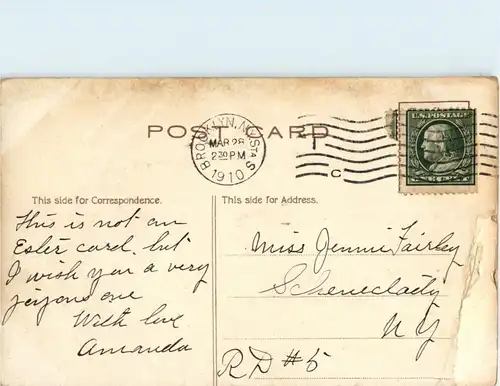 POST CARD
BROOKLYN, N.Y. STA S
MAR 28
2 30 P.M
1910
C
U.S. POSTAGE
This side for Correspondence.
This is not an
Ester card. but
I wish you a very
joyous one
With love
Amanda
This side for Address.
Miss Jennie Fairley
Schenectady
N Y
R D # 5